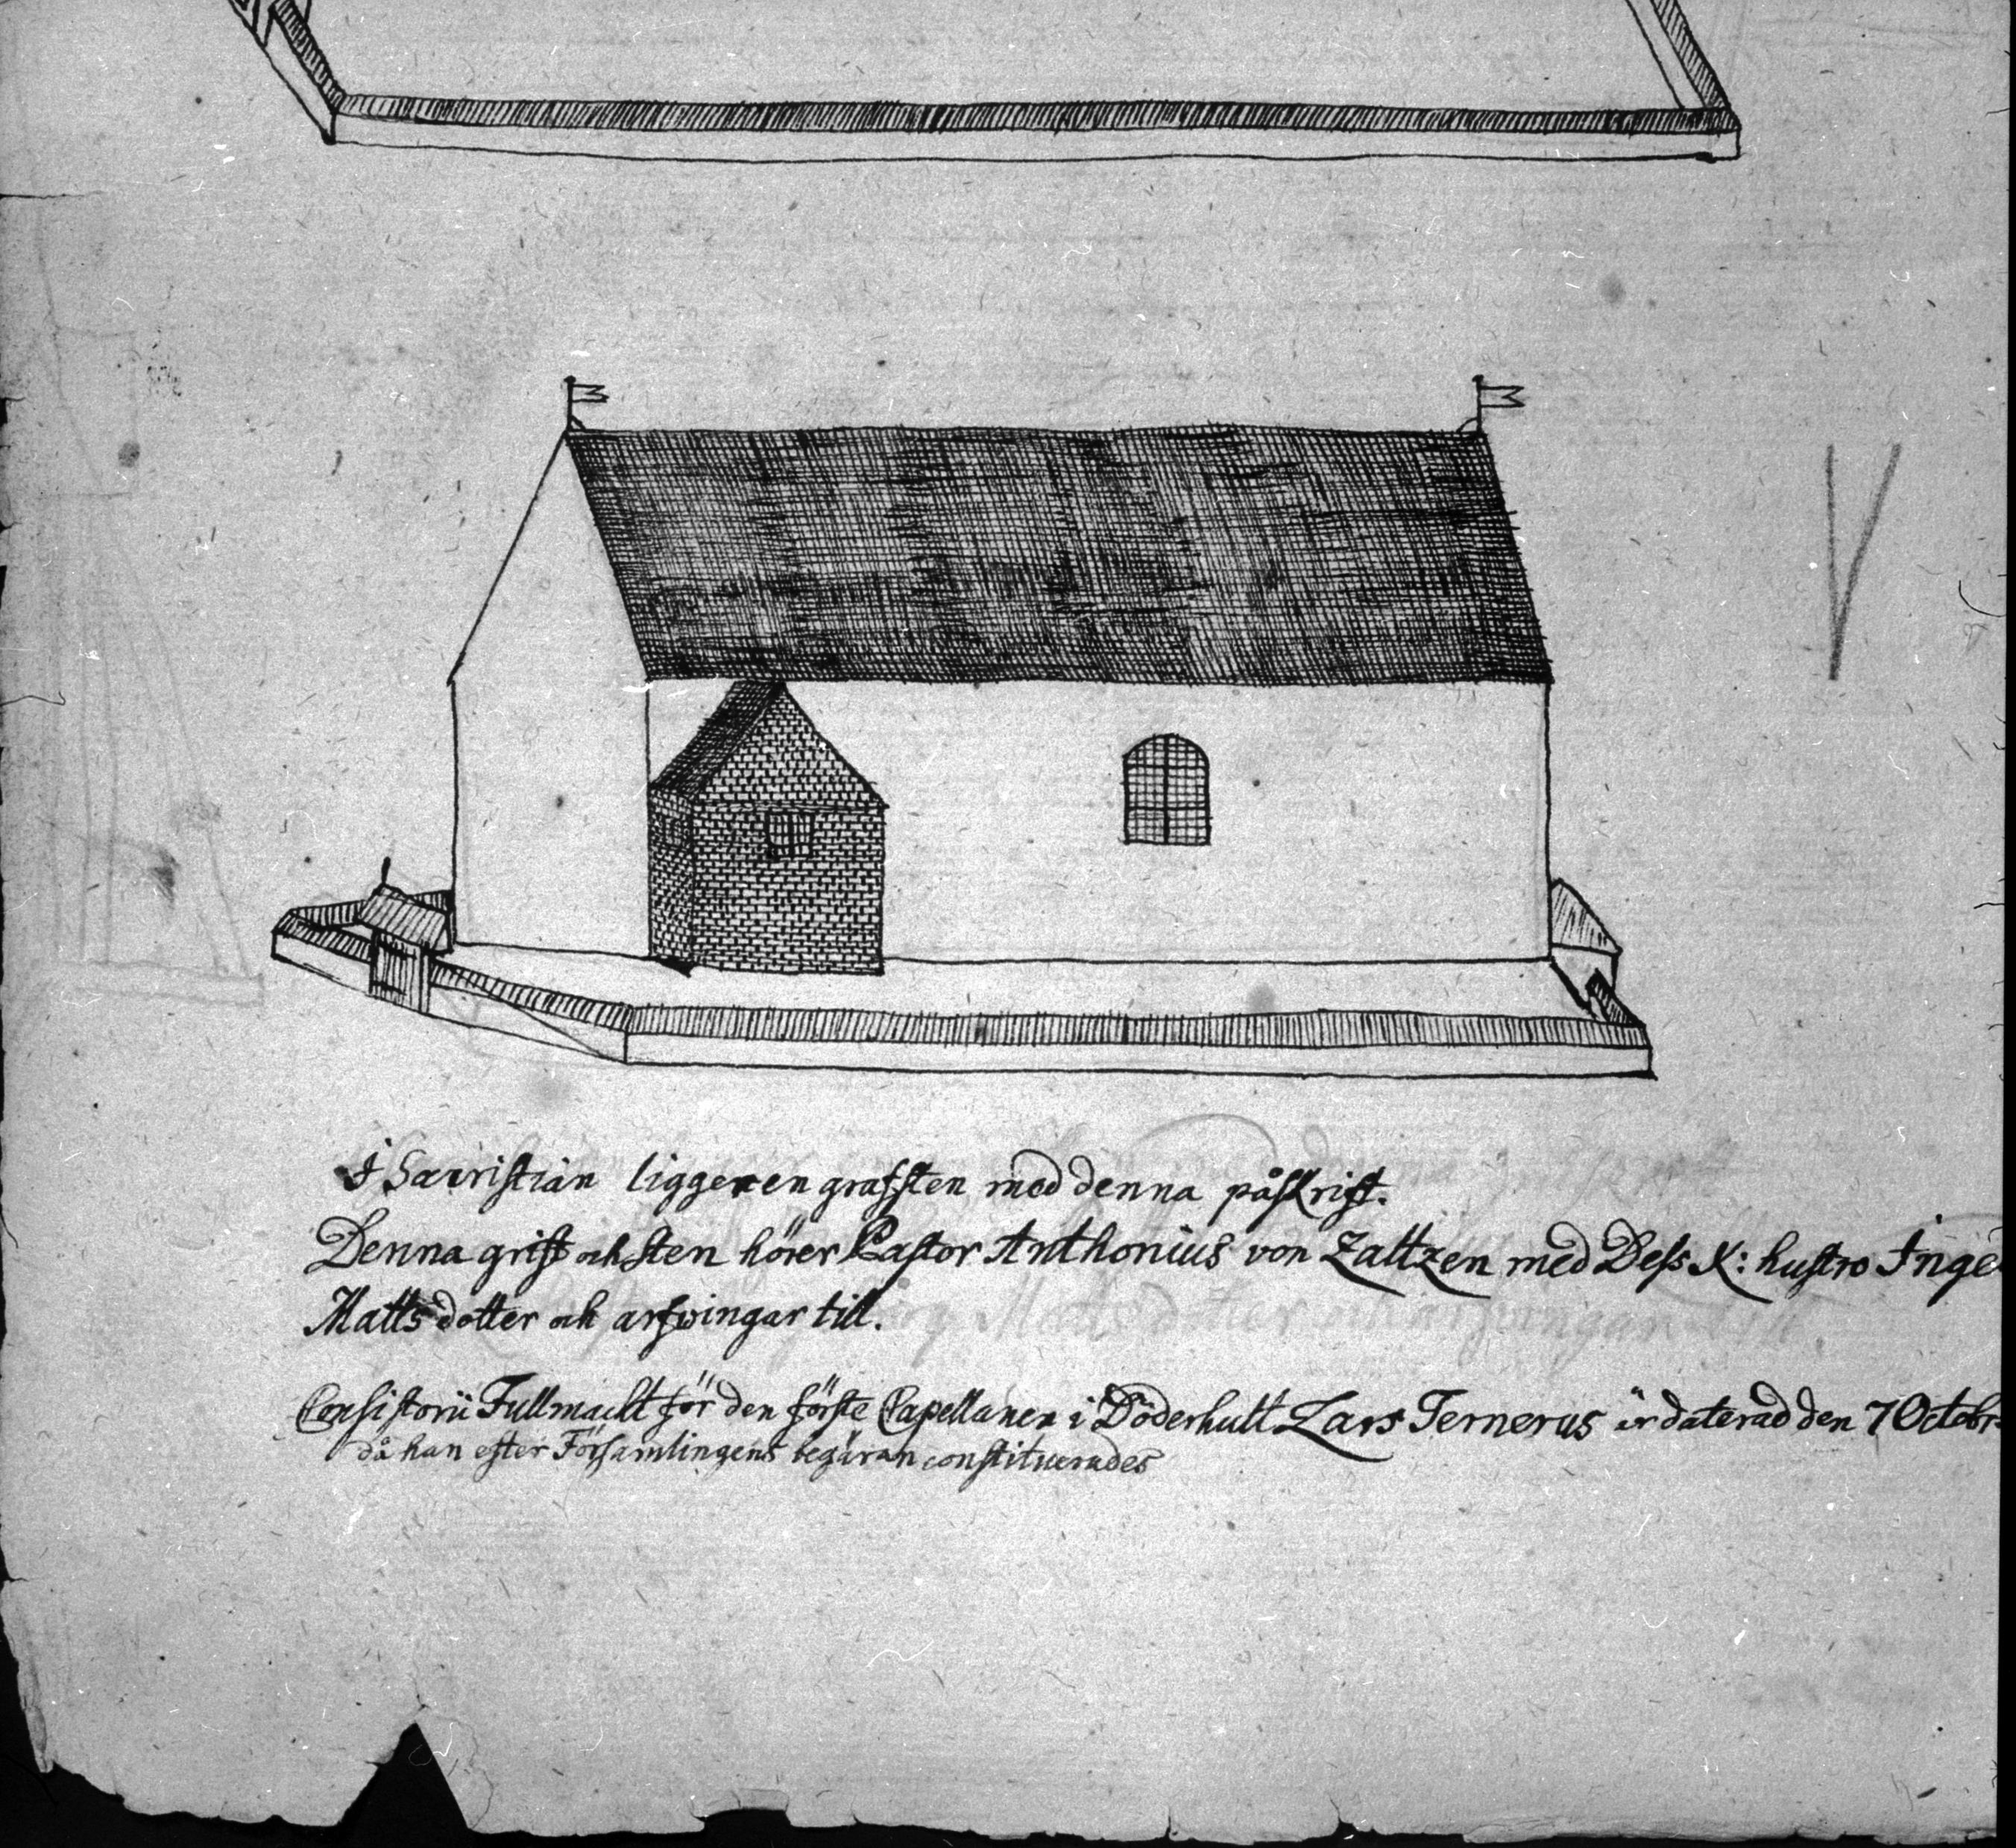 I Sacristian ligger en grafsten med denna påskrift.
Denna grift och sten hörer Pastor Anthonius von Zaltzen med Dess K: hustro Inge
Matts dotter och arfwingar till.
Consistorii Fullmacht för den förste Capellanen i Döderhult Lars Ternerus är daterad den 7 Octobr
då han efter Församlingens begäran constituerades